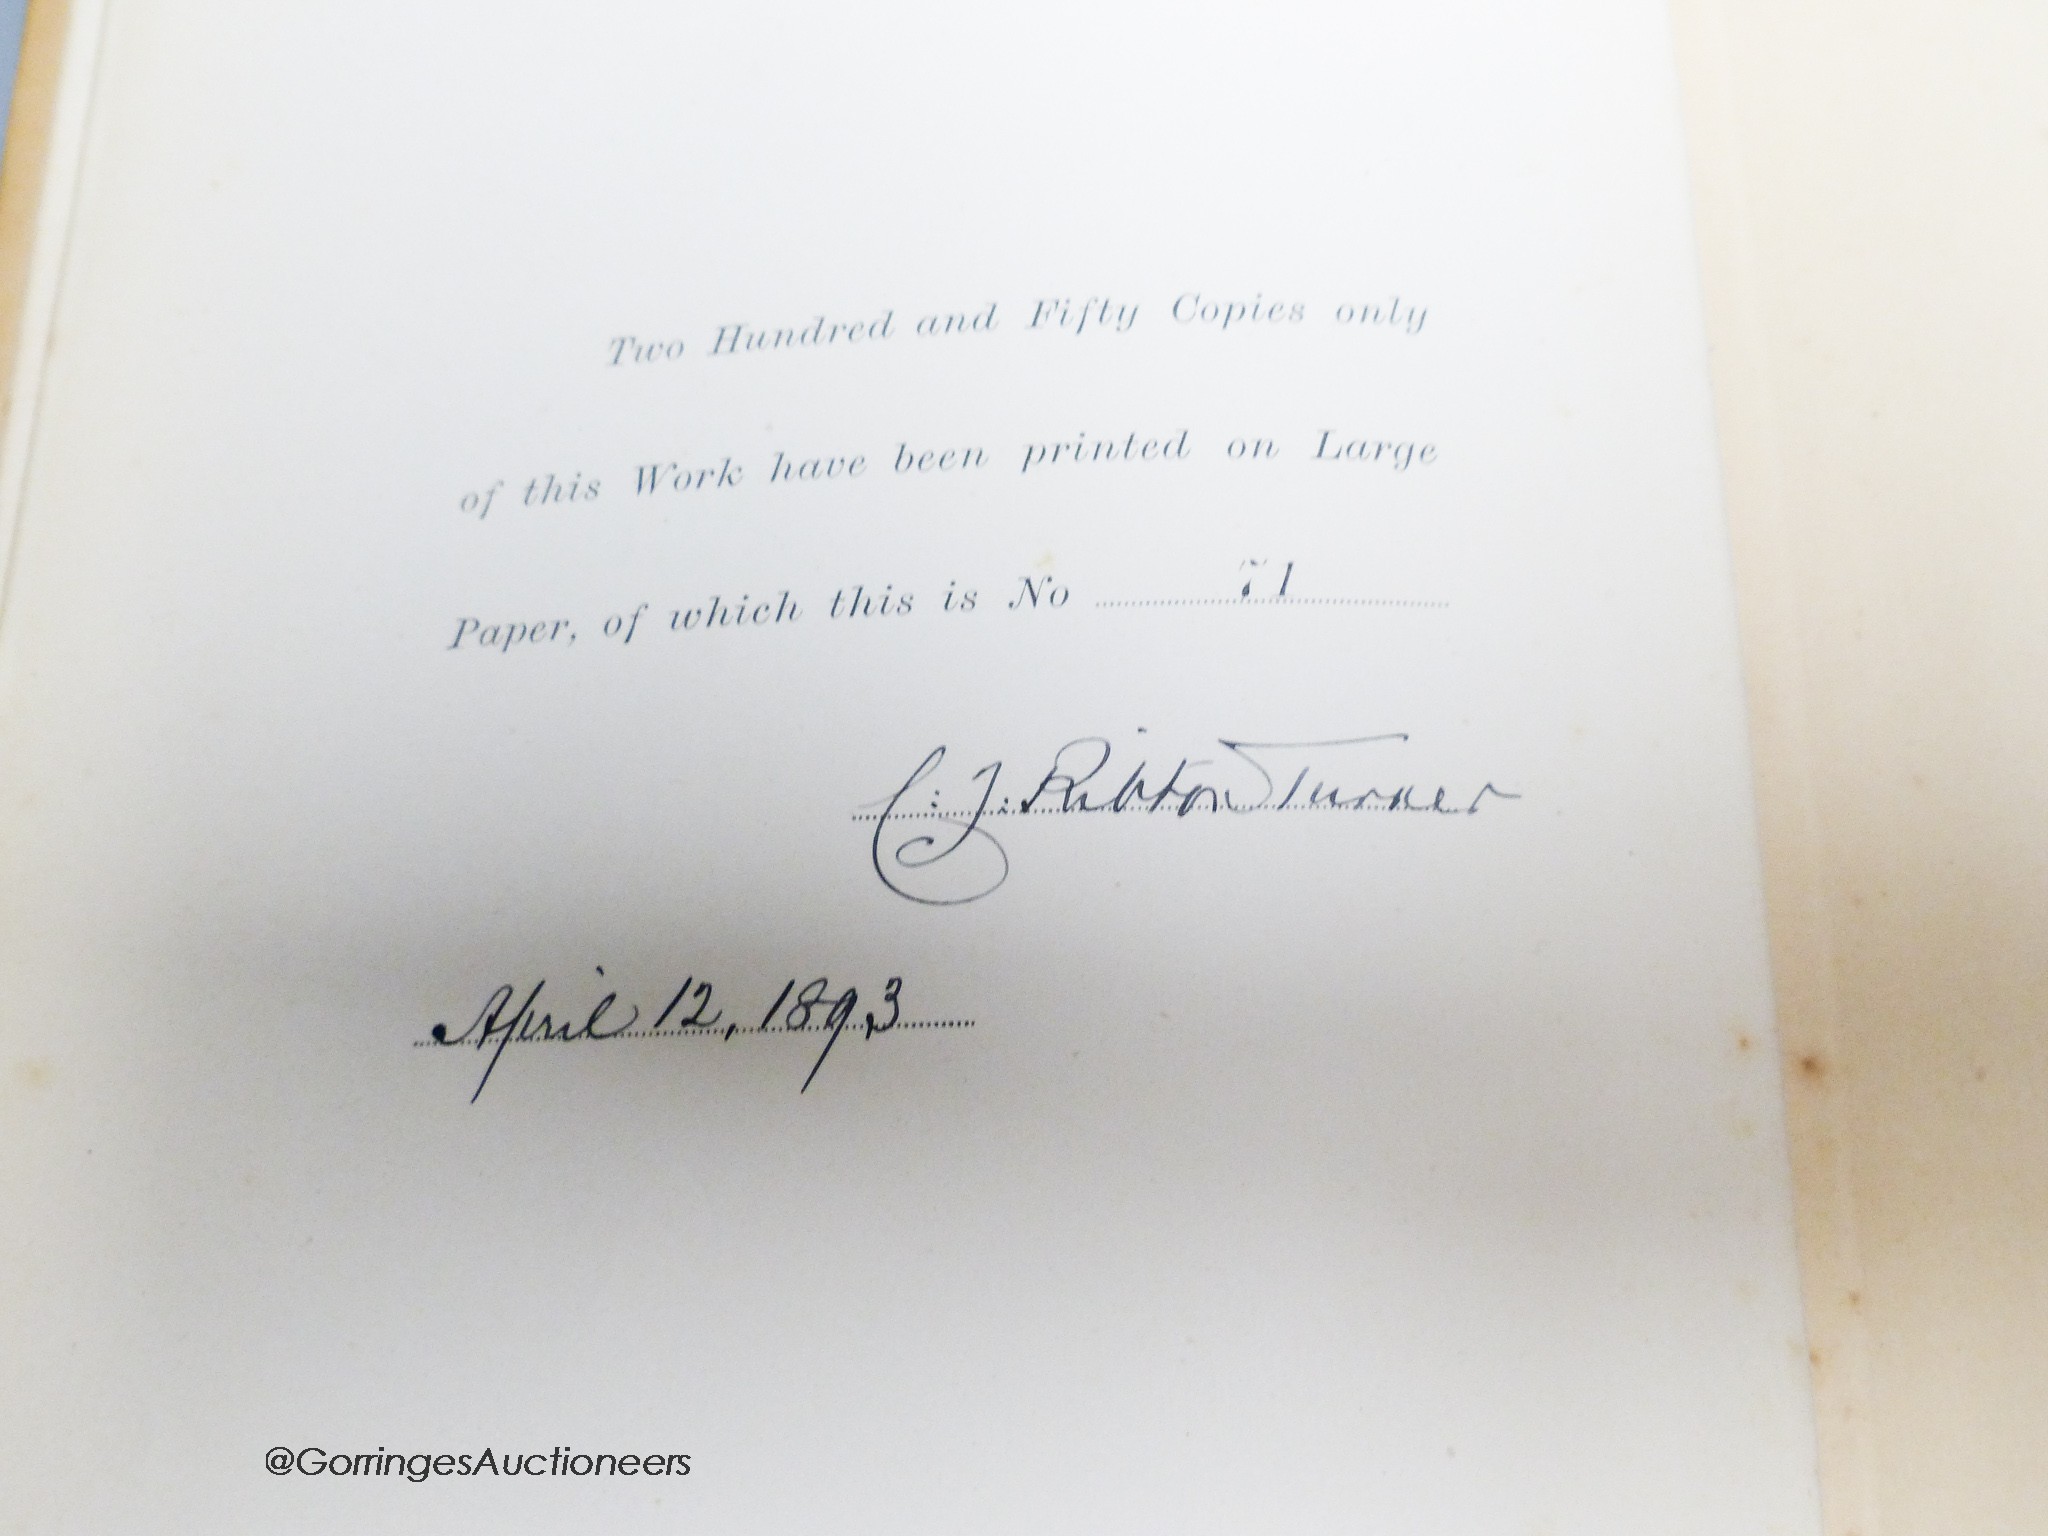 Two Hundred and Fifty Copies only
of this Work have been printed on Large
Paper, of which this is No 71
C. J. Ribton Turner
April 12, 1893
@GorringesAuctioneers